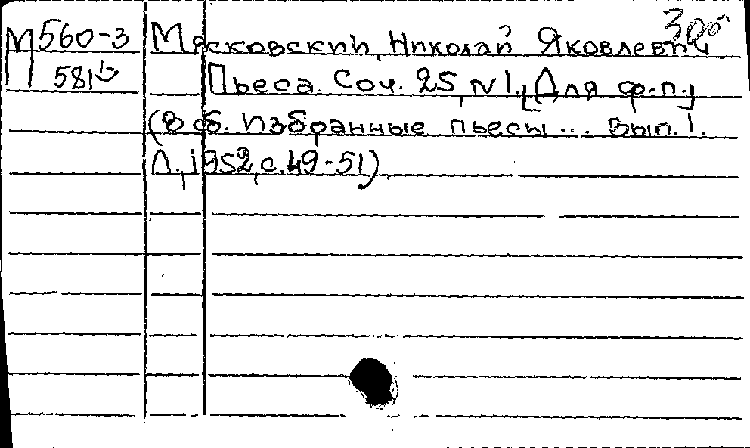 300
М 560-3 Мясковский, Николай Яковлевич
581 Пьеса. Соч. 25, N1. [Для ф.п.]
(В сб. Избранные пьесы... Вып. 1.
Л., 1952, с. 49-51)